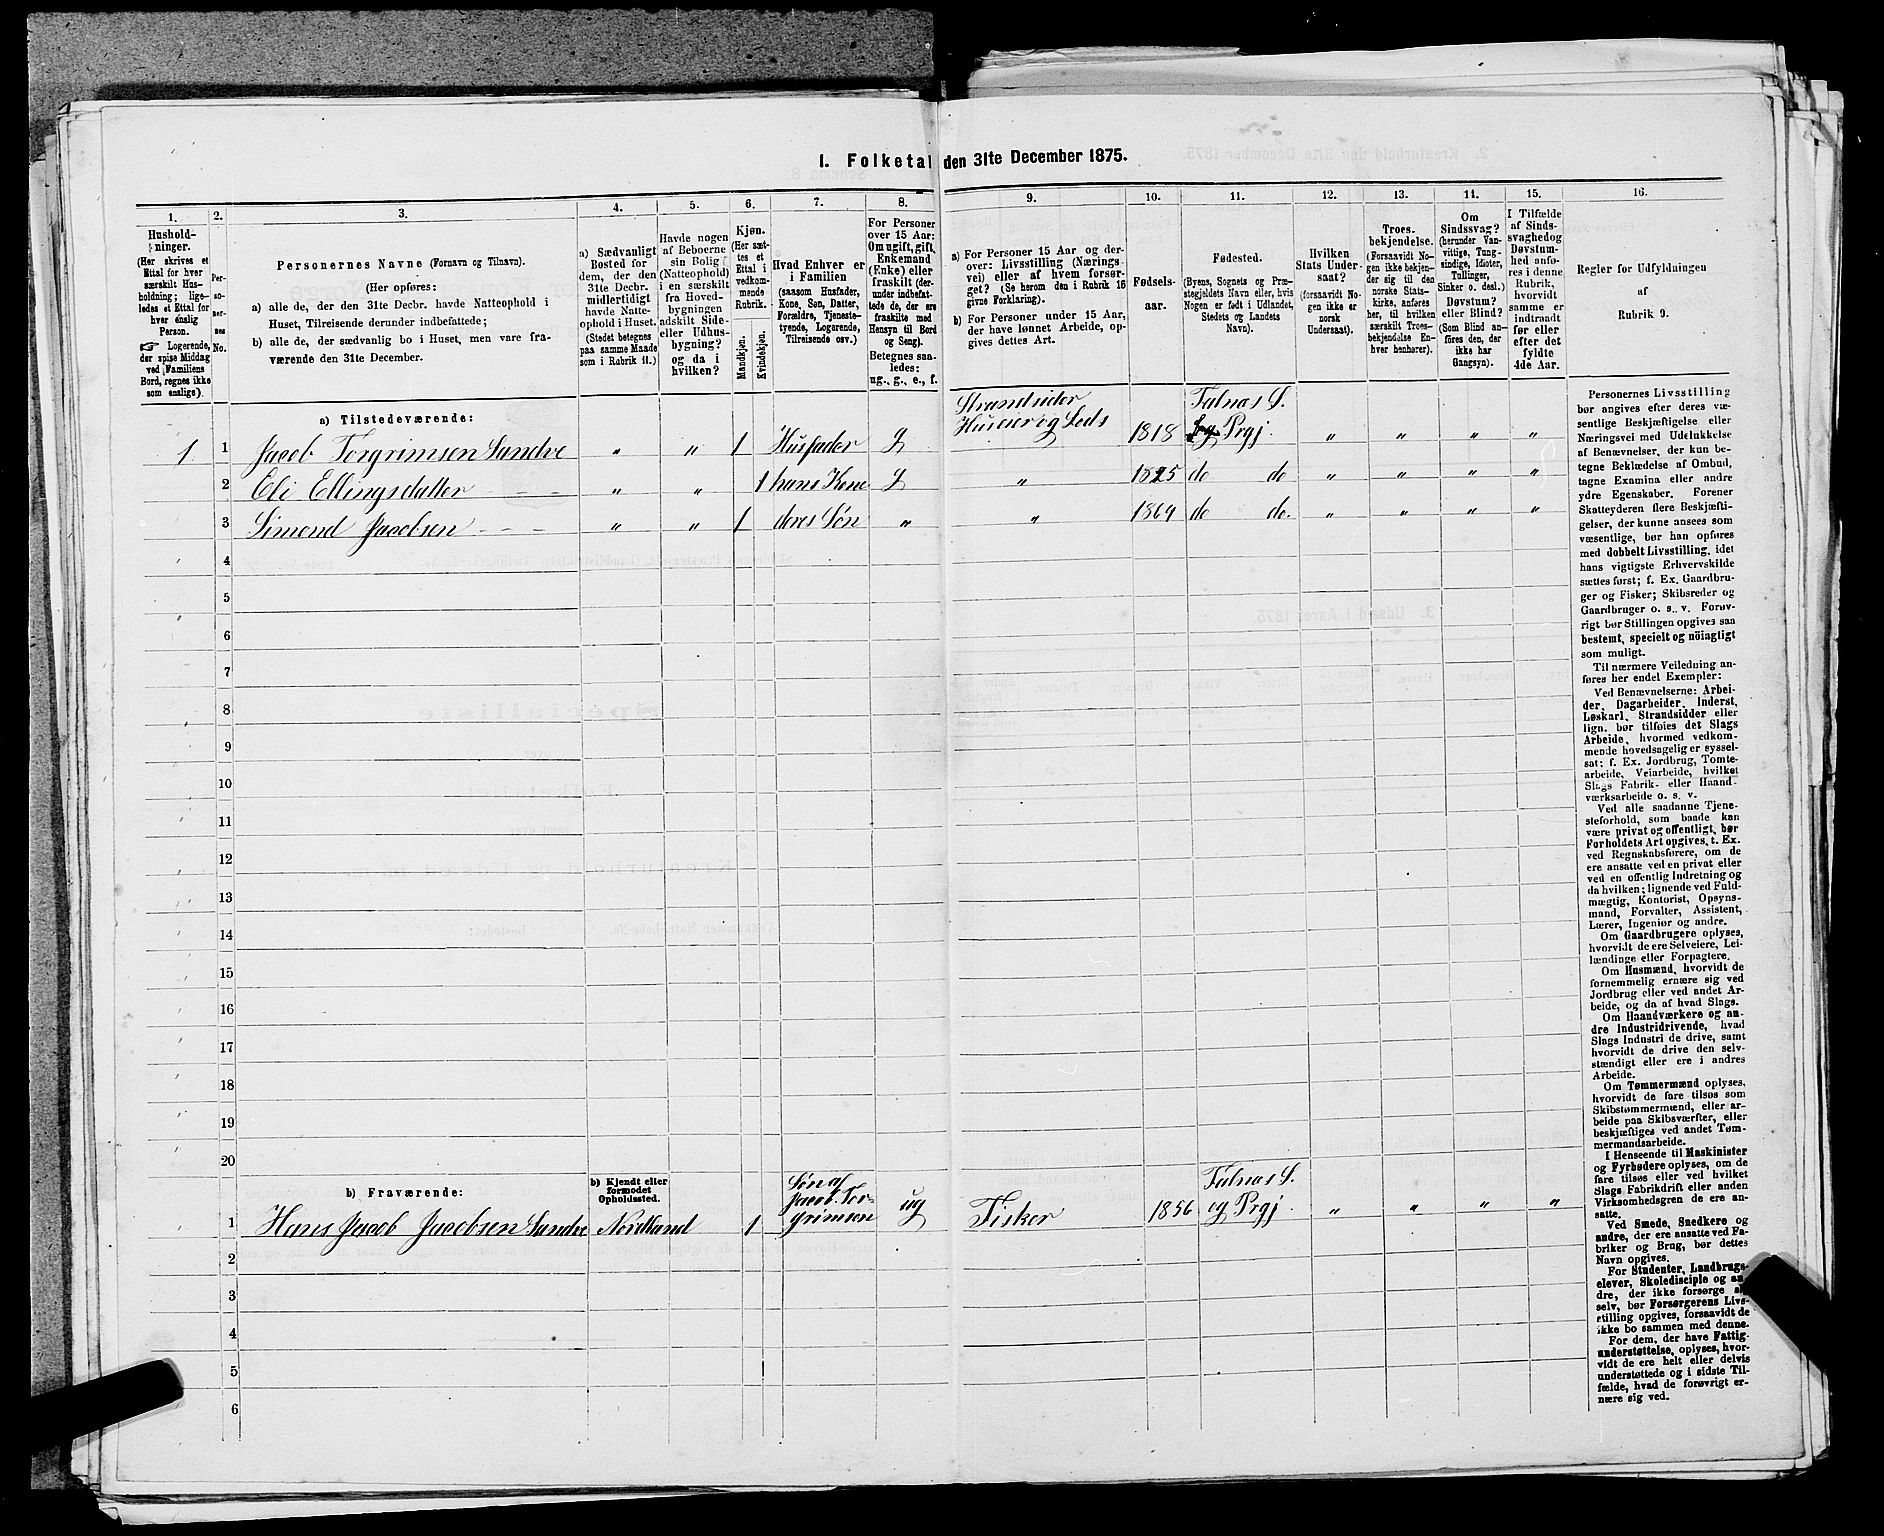 I. Folketal den 31te December 1875.
1.
2.
3.
4.
5.
6.
7.
8.
9.
10.
11.
12.
13.
14.
15.
16.
Hushold-
ninger.
(Her skrives et
Ettal for hver
særskilt Hus-
holdning; lige-
ledes et Ettal for
hver enslig
Person.
☞ Logerende,
der spise Middag
ved Familiens
Bord, regnes ikke
som enslige).
Per-
so-
ner-
nes
No.
Personernes Navne (Fornavn og Tilnavn).
(Her opføres:
a) alle de, der den 31te Decbr. havde Natteophold i
Huset, Tilreisende derunder indbefattede;
b) alle de, der sædvanlig bo i Huset, men vare fra-
værende den 31te December.
a) Sædvanligt
Bosted for
dem, der den
31te Decbr.
midlertidigt
havde Natte-
ophold i Huset.
(Stedet betegnes
paa samme Maade
som i Rubrik 11.)
Havde nogen
af Beboerne
sin Bolig
(Natteophold)
i en særskilt
fra Hoved-
bygningen
adskilt Side-
eller Udhus-
bygning?
og da i
hvilken?
Kjøn.
(Her sæt-
tes et
Ettal i
vedkom-
mende
Rubrik.
Mandkjøn.
Kvindekjøn.
Hvad Enhver er
i Familien
(saasom Husfader,
Kone, Søn, Datter,
Forældre, Tjeneste-
tyende, Logerende,
Tilreisende osv.)
For Personer
over 15 Aar:
Om ugift, gift,
Enkemand
(Enke) eller
fraskilt (der-
under indbefat-
tede de, der ere
fraskilte med
Hensyn til Bord
og Seng).
Betegnes saa-
ledes:
ug., g., e., f.
a) For Personer 15 Aar og der-
over: Livsstilling (Nærings-
vei) eller af hvem forsør-
get? (Se herom den i Rubrik 16
givne Forklaring).
b) For Personer under 15 Aar,
der have lønnet Arbeide, op-
gives dettes Art.
Fødsels-
aar.
Fødested.
(Byens, Sognets og Præ-
stegjeldets Navn eller, hvis
Nogen er født i Udlandet,
Stedets og Landets
Navn).
Hvilken
Stats Under-
saat?
(forsaavidt No-
gen ikke er
norsk
Undersaat).
Troes-
bekjendelse.
(Forsaavidt No-
gen ikke bekjen-
der sig til den
norske Stats-
kirke, anføres
her, til hvilken
særskilt Troes-
bekjendelse En-
hver henhører).
Om
Sindssvag?
(herunder Van-
vittige, Tung-
sindige, Idioter,
Tullinger,
Sinker o. desl.)
Døvstum?
eller Blind?
(Som Blind an-
føres den, der
ikke har
Gangsyn).
I Tilfælde
af Sinds-
svaghed og
Døvstum-
hed anfø-
res i denne
Rubrik,
hvorvidt
samme er
indtraadt
før eller
efter det
fyldte
4de Aar.
Regler for Udfyldningen
af
Rubrik 9.
a) Tilstedeværende:
Strandsider
Huseier og Leds
Talnæs S.
1 1 Jacob Torgrimsen Sandve " " 1 Husfader g 1818 og Prgj. " " " "
2 Eli Ellingsdatter - - " " 1 hans Kone g " 1825 do do " " " "
3 Simond Jacobsen - - " " 1 deres Søn " " 1864 do do. " " " "
4
5
6
7
8
9
10
11
12
13
14
15
16
17
18
19
20
b) Fraværende:
b) Kjendt eller
formodet
Opholdssted.
Søn af
Jacob Tor-
grimsen
Talnæs S.
1 Hans Jacob Jacobsen Sandve Nordland 1 ug Fisker 1856 og Prgj. " " " "
2
3
4
5
6
Personernes Livsstilling
bør angives efter deres væ-
sentlige Beskjæftigelse eller
Næringsvei med Udelukkelse
af Benævnelser, der kun be-
tegne Beklædelse af Ombud,
tagne Examina eller andre
ydre Egenskaber. Forener
Skatteyderen flere Beskjæfti-
gelser, der kunne ansees som
væsentlige, bør han opføres
med dobbelt Livsstilling, idet
hans vigtigste Erhvervskilde
sættes først; f. Ex. Gaardbru-
ger og Fisker; Skibsreder og
Gaardbruger o. s. v. Forøv-
rigt bør Stillingen opgives saa
bestemt, specielt og nöiagtigt
som muligt.
Til nærmere Veiledning an-
føres her endel Exempler:
Ved Benævnelserne: Arbei-
der, Dagarbeider, Inderst,
Løskarl, Strandsidder eller
lign. bør tilføies det Slags
Arbeide, hvormed vedkom-
mende hovedsagelig er syssel-
sat; f. Ex. Jordbrug, Tomte-
arbeide, Veiarbeide, hvilket
Slags Fabrik- eller Haand-
værksarbeide o. s. v.
Ved alle saadanne Tjene-
steforhold, som baade kan
være privat og offentligt, bør
Forholdets Art opgives, t. Ex.
ved Regnskabsførere, om de
ere ansatte ved en privat eller
ved en offentlig Indretning og
da hvilken; lignende ved Fuld-
mægtig, Kontorist, Opsyns-
mand, Forvalter, Assistent,
Lærer, Ingeniør og andre.
Om Gaardbrugere oplyses,
hvorvidt de ere Selveiere, Lei-
lændinge eller Forpagtere.
Om Husmænd, hvorvidt de
fornemmelig ernære sig ved
Jordbrug eller ved andet Ar-
beide, og da af hvad Slags.
Om Haandværkere og an-
dre Industridrivende, hvad
Slags Industri de drive, samt
hvorvidt de drive den selv-
stændigt eller ere i andres
Arbeide.
Om Tømmermænd oplyses,
hvorvidt de fare tilsøs som
Skibstømmermænd, eller ar-
beide paa Skibsværfter, eller
beskjæftiges ved andet Tøm-
mermandsarbeide.
I Henseende til Maskinister
og Fyrbødere oplyses, om de
fare tilsøs eller ved hvilket
Slags Fabrikdrift eller anden
Virksomhedsgren de ere an-
satte.
Ved Smede, Snedkere og
andre, der ere ansatte ved Fa-
briker og Brug, bør dettes
Navn opgives.
For Studenter, Landbrugs-
elever, Skoledisciple og an-
dre, der ikke forsørge sig
selv, bør Forsørgerens Livs-
stilling opgives, forsaavidt de
ikke bo sammen med denne.
For dem, der have Fattig-
understøttelse, oplyses, hvor-
vidt de ere helt eller delvis
understøttede og i sidste Til-
fælde, hvad de forøvrigt er-
nære sig ved.